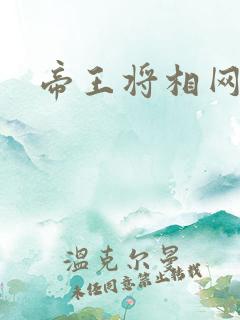 帝王将相网
温克尔曼
未经同意禁止转载